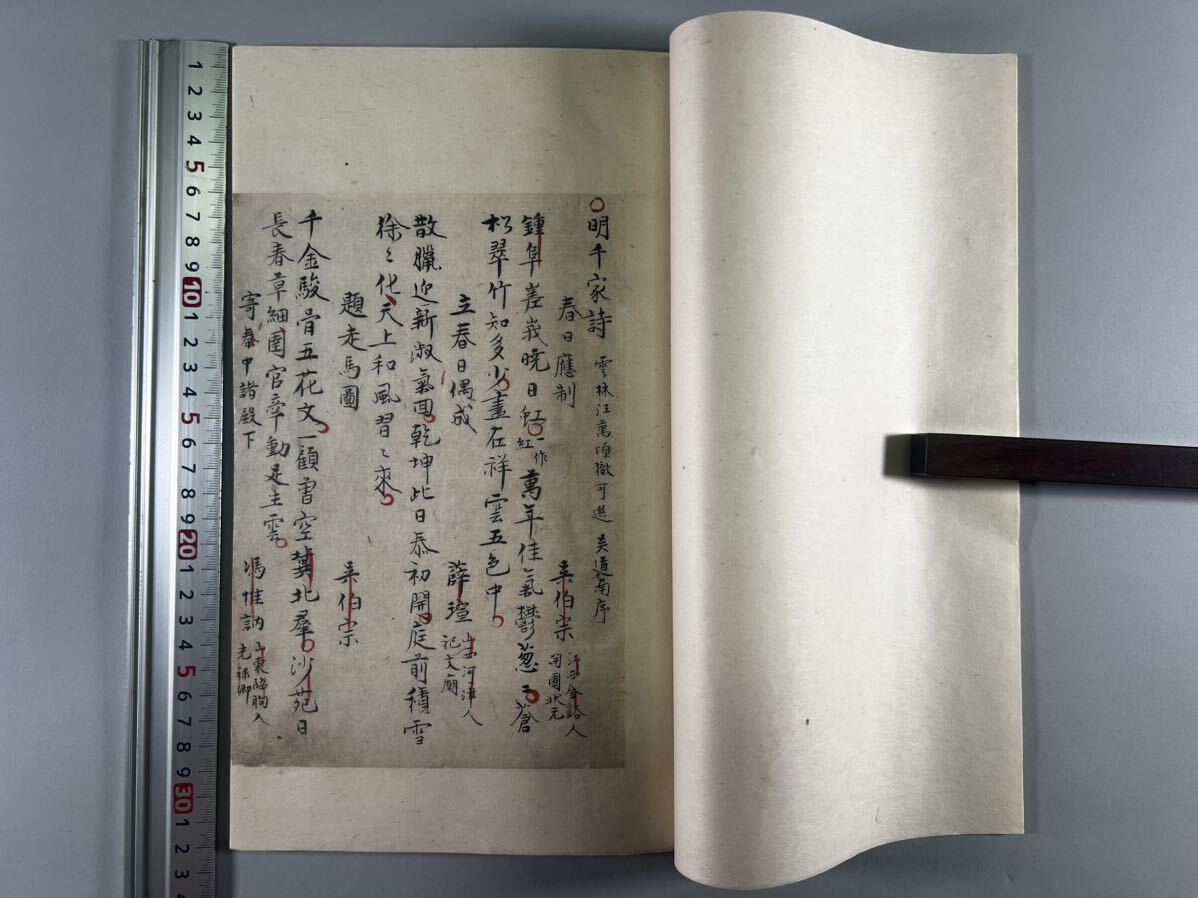 明千家詩 雲林汪萬頃徹可選 吳道南序
春日應制 吳伯宗 江西金谿人 開國狀元
鍾阜嵳峩曉日虹 一作紅 萬年佳氣鬱葱〻蒼
松翠竹知多少盡在祥雲五色中
立春日偶成 薛瑄 山西河津人 祀文廟
散臘迎新淑氣回乾坤此日泰初開庭前積雪
徐〻化天上和風習〻來
題走馬圖 吳伯宗
千金駿骨五花文一顧曾空冀北羣沙苑日
長春草細圉官牽動是生雲
寄泰中諸殿下 馮惟訥 山東臨朐人 光祿卿
1 2 3 4 5 6 7 8 9 10 1 2 3 4 5 6 7 8 9 20 1 2 3 4 5 6 7 8 9 30 1 2 3